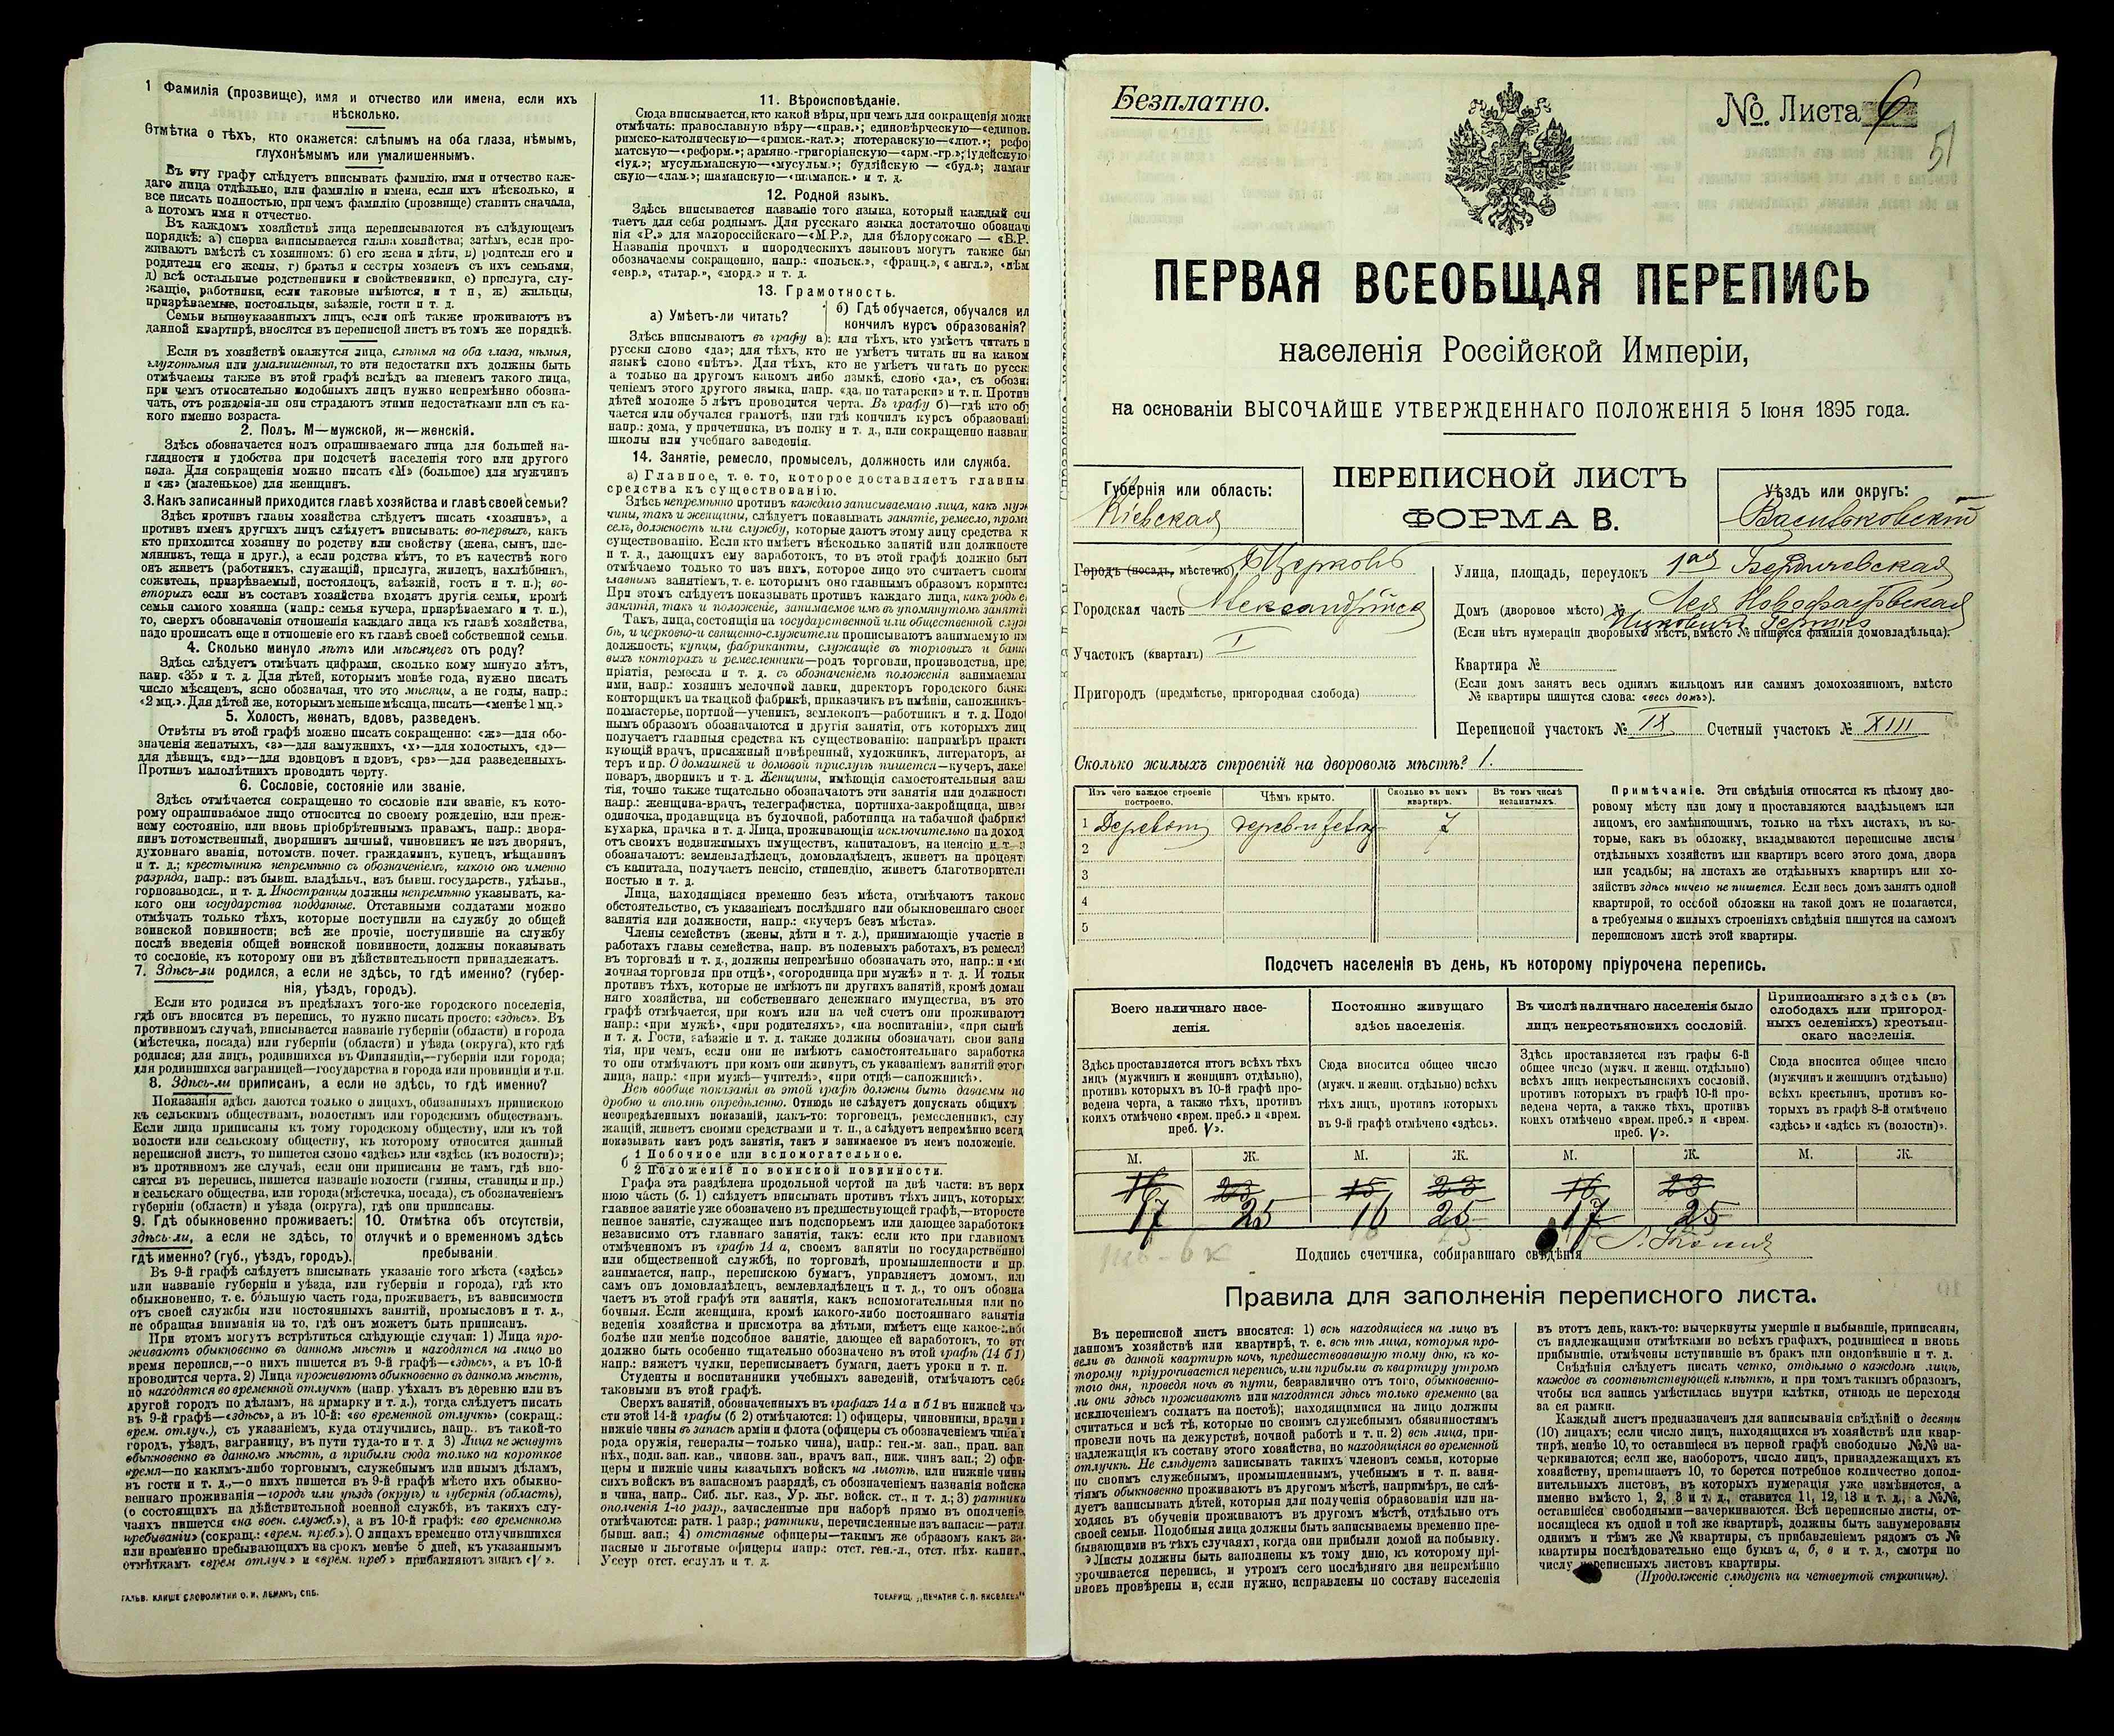 1 Фамилія (прозвище), имя и отчество или имена, если ихъ
нѣсколько.
Отмѣтка о тѣхъ, кто окажется: слѣпымъ на оба глаза, нѣмымъ,
глухонѣмымъ или умалишеннымъ.
Въ эту графу слѣдуетъ вписывать фамилію, имя и отчество каж-
даго лица отдѣльно, или фамилію и имена, если ихъ нѣсколько, и
все писать полностью, при чемъ фамилію (прозвище) ставить сначала,
а потомъ имя и отчество.
Въ каждомъ хозяйствѣ лица переписываются въ слѣдующемъ
порядкѣ: а) сперва записывается глава хозяйства; затѣмъ, если про-
живаютъ вмѣстѣ съ хозяиномъ: б) его жена и дѣти, в) родители его и
родители его жены, г) братья и сестры хозяевъ съ ихъ семьями,
д) всѣ остальные родственники и свойственники, е) прислуга, слу-
жащіе, работники, если таковые имѣются, и т п, ж) жильцы,
призрѣваемые, постояльцы, заѣзжіе, гости и т. д.
Семьи вышеуказанныхъ лицъ, если онѣ также проживаютъ въ
данной квартирѣ, вносятся въ переписной листъ въ томъ же порядкѣ.
Если въ хозяйствѣ окажутся лица, слѣпыя на оба глаза, нѣмыя,
глухонѣмыя или умалишенныя, то эти недостатки ихъ должны быть
отмѣчаемы также въ этой графѣ вслѣдъ за именемъ такого лица,
при чемъ относительно подобныхъ лицъ нужно непремѣнно обозна-
чать, отъ рожденія-ли они страдаютъ этими недостатками или съ ка-
кого именно возраста.
2. Полъ. М—мужской, ж—женскій.
Здѣсь обозначается полъ опрашиваемаго лица для большей на-
глядности и удобства при подсчетѣ населенія того или другого
пола. Для сокращенія можно писать «М» (большое) для мужчинъ
и «ж» (маленькое) для женщинъ.
3. Какъ записанный приходится главѣ хозяйства и главѣ своей семьи?
Здѣсь противъ главы хозяйства слѣдуетъ писать «хозяинъ», а
противъ именъ другихъ лицъ слѣдуетъ вписывать: во-первыхъ, какъ
кто приходится хозяину по родству или свойству (жена, сынъ, пле-
мянникъ, теща и друг.), а если родства нѣтъ, то въ качествѣ кого
онъ живетъ (работникъ, служащій, прислуга, жилецъ, нахлѣбникъ,
сожитель, призрѣваемый, постоялецъ, заѣзжій, гость и т. п.); во-
вторыхъ если въ составъ хозяйства входятъ другія семьи, кромѣ
семьи самого хозяина (напр: семья кучера, призрѣваемаго и т. п.),
то, сверхъ обозначенія отношенія каждаго лица къ главѣ хозяйства,
надо прописать еще и отношеніе его къ главѣ своей собственной семьи.
4. Сколько минуло лѣтъ или мѣсяцевъ отъ роду?
Здѣсь слѣдуетъ отмѣчать цифрами, сколько кому минуло лѣтъ,
напр. «35» и т. д. Для дѣтей, которымъ менѣе года, нужно писать
число мѣсяцевъ, ясно обозначая, что это мѣсяцы, а не годы, напр.:
«2 мц.». Для дѣтей же, которымъ меньше мѣсяца, писать—«менѣе 1 мц.»
5. Холостъ, женатъ, вдовъ, разведенъ.
Отвѣты въ этой графѣ можно писать сокращенно: «ж»—для обо-
значенія женатыхъ, «з»—для замужнихъ, «х»—для холостыхъ, «д»—
для дѣвицъ, «вд»—для вдовцовъ и вдовъ, «рз»—для разведенныхъ.
Противъ малолѣтнихъ проводить черту.
6. Сословіе, состояніе или званіе.
Здѣсь отмѣчается сокращенно то сословіе или званіе, къ кото-
рому опрашиваемое лицо относится по своему рожденію, или преж-
нему состоянію, или вновь пріобрѣтеннымъ правамъ, напр.: дворя-
нинъ потомственный, дворянинъ личный, чиновникъ не изъ дворянъ,
духовнаго званія, потомств. почет. гражданинъ, купецъ, мѣщанинъ
и т. д.; крестьянинъ непремѣнно съ обозначеніемъ, какого онъ именно
разряда, напр.: изъ бывш. владѣльч., изъ бывш. государств., удѣльн.,
горнозаводск., и т. д. Иностранцы должны непремѣнно указывать, ка-
кого они государства подданные. Отставными солдатами можно
отмѣчать только тѣхъ, которые поступили на службу до общей
воинской повинности; всѣ же прочіе, поступившіе на службу
послѣ введенія общей воинской повинности, должны показывать
то сословіе, къ которому они въ дѣйствительности принадлежатъ.
7. Здѣсь-ли родился, а если не здѣсь, то гдѣ именно? (губер-
нія, уѣздъ, городъ).
Если кто родился въ предѣлахъ того-же городского поселенія,
гдѣ онъ вносится въ перепись, то нужно писать просто: «здѣсь». Въ
противномъ случаѣ, вписывается названіе губерніи (области) и города
(мѣстечка, посада) или губерніи (области) и уѣзда (округа), кто гдѣ
родился; для лицъ, родившихся въ Финляндіи,—губерніи или города;
для родившихся заграницей—государства и города или провинціи и т.п.
8. Здѣсь-ли приписанъ, а если не здѣсь, то гдѣ именно?
Показанія здѣсь даются только о лицахъ, обязанныхъ припискою
къ сельскимъ обществамъ, волостямъ или городскимъ обществамъ.
Если лица приписаны къ тому городскому обществу, или къ той
волости или сельскому обществу, къ которому относится данный
переписной листъ, то пишется слово «здѣсь» или «здѣсь (къ волости)»;
въ противномъ же случаѣ, если они приписаны не тамъ, гдѣ вно-
сятся въ перепись, пишется названіе волости (гмины, станицы и пр.)
и сельскаго общества, или города (мѣстечка, посада), съ обозначеніемъ
губерніи (области) и уѣзда (округа), гдѣ они приписаны.
9. Гдѣ обыкновенно проживаетъ: здѣсь-ли, а если не здѣсь, то гдѣ именно? (губ., уѣздъ, городъ).
10. Отмѣтка объ отсутствіи, отлучкѣ и о временномъ здѣсь пребываніи
Въ 9-й графѣ слѣдуетъ вписывать указаніе того мѣста («здѣсь»
или названіе губерніи и уѣзда, или губерніи и города), гдѣ кто
обыкновенно, т. е. бо́льшую часть года, проживаетъ, въ зависимости
отъ своей службы или постоянныхъ занятій, промысловъ и т. д.,
не обращая вниманія на то, гдѣ онъ можетъ быть приписанъ.
При этомъ могутъ встрѣтиться слѣдующіе случаи: 1) Лица про-
живаютъ обыкновенно въ данномъ мѣстѣ и находятся на лицо во
время переписи,—о нихъ пишется въ 9-й графѣ—«здѣсь», а въ 10-й
проводится черта. 2) Лица проживаютъ обыкновенно въ данномъ мѣстѣ,
но находятся во временной отлучкѣ (напр. уѣхалъ въ деревню или въ
другой городъ по дѣламъ, на ярмарку и т. д.), тогда слѣдуетъ писать
въ 9-й графѣ—«здѣсь», а въ 10-й: «во временной отлучкѣ» (сокращ.:
врем. отлуч.), съ указаніемъ, куда отлучились, напр.. въ такой-то
городъ, уѣздъ, заграницу, въ пути туда-то и т. д 3) Лица не живутъ
обыкновенно въ данномъ мѣстѣ, а прибыли сюда только на короткое
время—по какимъ-либо торговымъ, служебнымъ или инымъ дѣламъ,
въ гости и т. д.,—о нихъ пишется въ 9-й графѣ мѣсто ихъ обыкно-
веннаго проживанія—городъ или уѣздъ (округъ) и губернія (область),
(о состоящихъ на дѣйствительной военной службѣ, въ такихъ слу-
чаяхъ пишется «на воен. служб.»), а въ 10-й графѣ: «во временномъ
пребываніи» (сокращ.: «врем. преб.»). О лицахъ временно отлучившихся
или временно пребывающихъ на срокъ менѣе 5 дней, къ указаннымъ
отмѣткамъ «врем отлуч.» и «врем. преб» прибавляютъ знакъ «V».
ГАЛЬВ. КЛИШЕ СЛОВОЛИТНИ О. И. ЛЕМАНЪ, СПБ.
11. Вѣроисповѣданіе.
Сюда вписывается, кто какой вѣры, при чемъ для сокращенія
отмѣчать: православную вѣру—«прав.»; единовѣрческую—«единов.
римско-католическую—«римск.-кат.»; лютеранскую—«лют.»;
матскую—«реформ.»; армяно-григоріанскую—«арм.-гр.»; іудейскую
«іуд.»; мусульманскую—«мусульм.»; буддійскую — «буд.»;
скую—«лам.»; шаманскую—«шаманск.» и т. д.
12. Родной языкъ.
Здѣсь вписывается названіе того языка, который каждый
таетъ для себя роднымъ. Для русскаго языка достаточно
нія «Р.» для малороссійскаго—«М.Р.», для бѣлорусскаго — «Б.Р.
Названія прочихъ и инородческихъ языковъ могутъ также
обозначаемы сокращенно, напр.: «польск.», «франц.», «англ.», «нѣм
«евр.», «татар.», «морд.» и т. д.
13. Грамотность.
а) Умѣетъ-ли читать?
б) Гдѣ обучается, обучался
кончилъ курсъ образованія?
Здѣсь вписываютъ въ графу а): для тѣхъ, кто умѣетъ читать
русски слово «да»; для тѣхъ, кто не умѣетъ читать ни на каком
языкѣ слово «нѣтъ». Для тѣхъ, кто не умѣетъ читать по русск
а только на другомъ какомъ либо языкѣ, слово «да», съ
ченіемъ этого другого языка, напр. «да, по татарски» и т. п. Против
дѣтей моложе 5 лѣтъ проводится черта. Въ графу б)—гдѣ кто
чается или обучался грамотѣ, или гдѣ кончилъ курсъ образовані
напр.: дома, у причетника, въ полку и т. д., или сокращенно назван
школы или учебнаго заведенія.
14. Занятіе, ремесло, промыселъ, должность или служба.
а) Главное, т. е. то, которое доставляетъ главны
средства къ существованію.
Здѣсь непремѣнно противъ каждаго записываемаго лица, какъ
чины, такъ и женщины, слѣдуетъ показывать занятіе, ремесло,
селъ, должность или службу, которые даютъ этому лицу средства к
существованію. Если кто имѣетъ нѣсколько занятій или должносте
и т. д., дающихъ ему заработокъ, то въ этой графѣ должно быт
отмѣчаемо только то изъ нихъ, которое лицо это считаетъ своим
главнымъ занятіемъ, т. е. которымъ оно главнымъ образомъ кормится
При этомъ слѣдуетъ показывать противъ каждаго лица, какъ родъ е
занятія, такъ и положеніе, занимаемое имъ въ упомянутомъ заняті
Такъ, лица, состоящія на государственной или общественной
бѣ, и церковно-и священно-служители прописываютъ занимаемую
должность; купцы, фабриканты, служащіе въ торговыхъ и
выхъ конторахъ и ремесленники—родъ торговли, производства,
пріятія, ремесла и т. д. съ обозначеніемъ положенія
ими, напр.: хозяинъ мелочной лавки, директоръ городского банка
конторщикъ на ткацкой фабрикѣ, приказчикъ въ имѣніи, сапожникъ-
подмастерье, портной—ученикъ, землекопъ—работникъ и т. д.
нымъ образомъ обозначаются и другія занятія, отъ которыхъ лиц
получаетъ главныя средства къ существованію: напримѣръ
кующій врачъ, присяжный повѣренный, художникъ, литераторъ,
теръ и пр. О домашней и домовой прислугѣ пишется—кучеръ,
поваръ, дворникъ и т. д. Женщины, имѣющія самостоятельныя
тія, точно также тщательно обозначаютъ эти занятія или должност
напр.: женщина-врачъ, телеграфистка, портниха-закройщица,
одиночка, продавщица въ булочной, работница на табачной фабрик
кухарка, прачка и т. д. Лица, проживающія исключительно на доход
отъ своихъ недвижимыхъ имуществъ, капиталовъ, на пенсію и т.
обозначаютъ: землевладѣлецъ, домовладѣлецъ, живетъ на процент
съ капитала, получаетъ пенсію, стипендію, живетъ благотворител
ностью и т. д.
Лица, находящіяся временно безъ мѣста, отмѣчаютъ таково
обстоятельство, съ указаніемъ послѣдняго или обыкновеннаго своег
занятія или должности, напр.: «кучеръ безъ мѣста».
Члены семействъ (жены, дѣти и т. д.), принимающіе участіе в
работахъ главы семейства, напр. въ полевыхъ работахъ, въ ремесл
въ торговлѣ и т. д., должны непремѣнно обозначать это, напр.:
лочная торговля при отцѣ», «огородница при мужѣ» и т. д. И тольк
противъ тѣхъ, которые не имѣютъ ни другихъ занятій, кромѣ домаш
няго хозяйства, ни собственнаго денежнаго имущества, въ это
графѣ отмѣчается, при комъ или на чей счетъ они проживаютъ
напр.: «при мужѣ», «при родителяхъ», «на воспитаніи», «при сынѣ
и т. д. Гости, заѣзжіе и т. д. также должны обозначать свои заня
тія, при чемъ, если они не имѣютъ самостоятельнаго заработка
то они отмѣчаютъ при комъ они живутъ, съ указаніемъ занятій этого
лица, напр.: «при мужѣ—учителѣ», «при отцѣ—сапожникѣ».
Всѣ вообще показанія въ этой графѣ должны быть даваемы по
дробно и вполнѣ опредѣленно. Отнюдь не слѣдуетъ допускать общихъ
неопредѣленныхъ показаній, какъ-то: торговецъ, ремесленникъ, слу
жащій, живетъ своими средствами и т. п., а слѣдуетъ непремѣнно всегд
показывать какъ родъ занятія, такъ и занимаемое въ немъ положеніе.
б 1 Побочное или вспомогательное.
2 Положеніе по воинской повинности.
Графа эта раздѣлена продольной чертой на двѣ части: въ верх
нюю часть (б. 1) слѣдуетъ вписывать противъ тѣхъ лицъ, которыхъ
главное занятіе уже обозначено въ предшествующей графѣ,—второсте
пенное занятіе, служащее имъ подспорьемъ или дающее заработокъ
независимо отъ главнаго занятія, такъ: если кто при главномъ
отмѣченномъ въ графѣ 14 а, своемъ занятіи по государственной
или общественной службѣ, по торговлѣ, промышленности и пр.
занимается, напр., перепискою бумагъ, управляетъ домомъ, или
самъ онъ домовладѣлецъ, землевладѣлецъ и т. д., то онъ обозна
чаетъ въ этой графѣ эти занятія, какъ вспомогательныя или по
бочныя. Если женщина, кромѣ какого-либо постояннаго занятія
веденія хозяйства и присмотра за дѣтьми, имѣетъ еще какое-либо
болѣе или менѣе подсобное занятіе, дающее ей заработокъ, то это
должно быть особенно тщательно обозначено въ этой графѣ (14 б 1)
напр.: вяжетъ чулки, переписываетъ бумаги, даетъ уроки и т. п.
Студенты и воспитанники учебныхъ заведеній, отмѣчаютъ себя
таковыми въ этой графѣ.
Сверхъ занятій, обозначенныхъ въ графахъ 14 а и б 1 въ нижней ча
сти этой 14-й графы (б 2) отмѣчаются: 1) офицеры, чиновники, врачи и
нижніе чины въ запасѣ арміи и флота (офицеры съ обозначеніемъ чина и
рода оружія, генералы—только чина), напр.: ген.-м. зап., прап. зап
пѣх., подп. зап. кав., чиновн. зап., врачъ зап., ниж. чинъ зап.; 2) офи-
церы и нижніе чины казачьихъ войскъ на льготѣ, или нижніе чины
сихъ войскъ въ запасномъ разрядѣ, съ обозначеніемъ названія войска
и чина, напр.: Сиб. льг. каз., Ур. льг. войск. ст., и т. д.; 3) ратники
ополченія 1-го разр., зачисленные при наборѣ прямо въ ополченіе,
отмѣчаются: ратн. 1 разр.; ратники, перечисленные изъ запаса:—ратн
бывш. зап.; 4) отставные офицеры—такимъ же образомъ какъ за-
пасные и льготные офицеры напр.: отст. ген.-л., отст. пѣх. капит.,
Уссур отст. есаулъ и т. д.
ТОВАРИЩ. „ПЕЧАТНЯ С. П. ЯКОВЛЕВА"
Безплатно.
№ Листа 6
51
ПЕРВАЯ ВСЕОБЩАЯ ПЕРЕПИСЬ
населенія Россійской Имперіи,
на основаніи ВЫСОЧАЙШЕ УТВЕРЖДЕННАГО ПОЛОЖЕНІЯ 5 Іюня 1895 года.
ПЕРЕПИСНОЙ ЛИСТЪ
ФОРМА В.
Губернія или область:
Кіевская
Уѣздъ или округъ:
Васильковскій
Городъ (посадъ, мѣстечко) Б Церковь
Городская часть
Участокъ (кварталъ) I
Пригородъ (предмѣстье, пригородная слобода)
Улица, площадь, переулокъ 1ая Бердичевская
Домъ (дворовое мѣсто) № Лея Новофастовская
(Если нѣтъ нумераціи дворовыхъ мѣстъ, вмѣсто № пишется фамилія домовладѣльца).
Квартира №
(Если домъ занятъ весь однимъ жильцомъ или самимъ домохозяиномъ, вмѣсто
№ квартиры пишутся слова: «весь домъ»).
Переписной участокъ № IX Счетный участокъ № XIII
Сколько жилыхъ строеній на дворовомъ мѣстѣ? 1.
Изъ чего каждое строеніе построено.
Чѣмъ крыто.
Сколько въ немъ квартиръ.
Въ томъ числѣ незанятыхъ.
1 7
2
3
4
5
Примѣчаніе. Эти свѣдѣнія относятся къ цѣлому дво-
ровому мѣсту или дому и проставляются владѣльцемъ или
лицомъ, его замѣняющимъ, только на тѣхъ листахъ, въ ко-
торые, какъ въ обложку, вкладываются переписные листы
отдѣльныхъ хозяйствъ или квартиръ всего этого дома, двора
или усадьбы; на листахъ же отдѣльныхъ квартиръ или хо-
зяйствъ здѣсь ничего не пишется. Если весь домъ занятъ одной
квартирой, то особой обложки на такой домъ не полагается,
а требуемыя о жилыхъ строеніяхъ свѣдѣнія пишутся на самомъ
переписномъ листѣ этой квартиры.
Подсчетъ населенія въ день, къ которому пріурочена перепись.
Всего наличнаго насе-
ленія.
Здѣсь проставляется итогъ всѣхъ тѣхъ
лицъ (мужчинъ и женщинъ отдѣльно),
противъ которыхъ въ 10-й графѣ про-
ведена черта, а также тѣхъ, противъ
коихъ отмѣчено «врем. преб.» и «врем.
преб. V».
Постоянно живущаго
здѣсь населенія.
Сюда вносится общее число
(мужч. и женщ. отдѣльно) всѣхъ
тѣхъ лицъ, противъ которыхъ
въ 9-й графѣ отмѣчено «здѣсь».
Въ числѣ наличнаго населенія было
лицъ некрестьянскихъ сословій.
Здѣсь проставляется изъ графы 6-й
общее число (мужч. и женщ. отдѣльно)
всѣхъ лицъ некрестьянскихъ сословій,
противъ которыхъ въ графѣ 10-й про-
ведена черта, а также тѣхъ, противъ
коихъ отмѣчено «врем. преб.» и «врем.
преб. V».
Приписаннаго здѣсь (въ
слободахъ или пригород-
ныхъ селеніяхъ) крестьян-
скаго населенія.
Сюда вносится общее число
(мужчинъ и женщинъ отдѣльно)
всѣхъ крестьянъ, противъ ко-
торыхъ въ графѣ 8-й отмѣчено
«здѣсь» и «здѣсь къ (волости)».
М. Ж. М. Ж. М. Ж. М. Ж.
16 23 15 23 16 23
17 25 16 25 17 25
Подпись счетчика, собиравшаго свѣдѣнія
Правила для заполненія переписного листа.
Въ переписной листъ вносятся: 1) всѣ находящіеся на лицо въ
данномъ хозяйствѣ или квартирѣ, т. е. всѣ тѣ лица, которыя про-
вели въ данной квартирѣ ночь, предшествовавшую тому дню, къ ко-
торому пріурочивается перепись, или прибыли въ квартиру утромъ
того дня, проведя ночь въ пути, безразлично отъ того, обыкновенно-
ли они здѣсь проживаютъ или находятся здѣсь только временно (за
исключеніемъ солдатъ на постоѣ); находящимися на лицо должны
считаться и всѣ тѣ, которые по своимъ служебнымъ обязанностямъ
провели ночь на дежурствѣ, ночной работѣ и т. п. 2) всѣ лица, при-
надлежащія къ составу этого хозяйства, но находящіяся во временной
отлучкѣ. Не слѣдуетъ записывать такихъ членовъ семьи, которые
по своимъ служебнымъ, промышленнымъ, учебнымъ и т. п. заня-
тіямъ обыкновенно проживаютъ въ другомъ мѣстѣ, напримѣръ, не слѣ-
дуетъ записывать дѣтей, которыя для полученія образованія или на-
ходясь въ обученіи проживаютъ въ другомъ мѣстѣ, отдѣльно отъ
своей семьи. Подобныя лица должны быть записываемы временно пре-
бывающими въ тѣхъ случаяхъ, когда они прибыли домой на побывку.
Листы должны быть заполнены къ тому дню, къ которому прі-
урочивается перепись, и утромъ сего послѣдняго дня непремѣнно
вновь провѣрены и, если нужно, исправлены по составу населенія
въ этотъ день, какъ-то: вычеркнуты умершіе и выбывшіе, приписаны,
съ надлежащими отмѣтками во всѣхъ графахъ, родившіеся и вновь
прибывшіе, отмѣчены вступившіе въ бракъ или овдовѣвшіе и т. д.
Свѣдѣнія слѣдуетъ писать четко, отдѣльно о каждомъ лицѣ,
каждое въ соотвѣтствующей клѣткѣ, и при томъ такимъ образомъ,
чтобы вся запись умѣстилась внутри клѣтки, отнюдь не переходя
за ея рамки.
Каждый листъ предназначенъ для записыванія свѣдѣній о десяти
(10) лицахъ; если число лицъ, находящихся въ хозяйствѣ или квар-
тирѣ, менѣе 10, то оставшіеся въ первой графѣ свободные №№ за-
черкиваются; если же, наоборотъ, число лицъ, принадлежащихъ къ
хозяйству, превышаетъ 10, то берется потребное количество допол-
нительныхъ листовъ, въ которыхъ нумерація уже измѣняется, а
именно вмѣсто 1, 2, 3 и т. д., ставится 11, 12, 13 и т. д., а №№,
оставшіеся свободными—зачеркиваются. Всѣ переписные листы, от-
носящіеся къ одной и той же квартирѣ, должны быть занумерованы
однимъ и тѣмъ же № квартиры, съ прибавленіемъ рядомъ съ №
квартиры послѣдовательно еще буквъ а, б, в и т. д., смотря по
числу переписныхъ листовъ квартиры.
(Продолженіе слѣдуетъ на четвертой страницѣ).